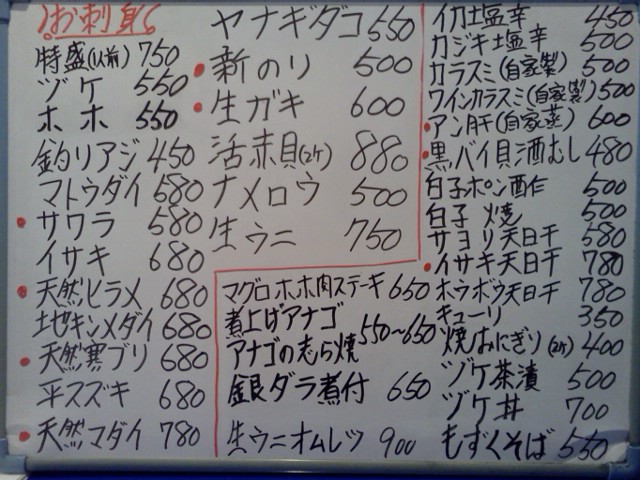 お刺身
特盛(1人前) 750
ヅケ 550
ホホ 550
釣りアジ 450
マトウダイ 580
サワラ 580
イサキ 680
天然ヒラメ 680
地キンメダイ 680
天然寒ブリ 680
平スズキ 680
天然マダイ 780
ヤナギダコ 550
新のり 500
生ガキ 600
活赤貝(2ケ) 880
ナメロウ 500
生ウニ 750
マグロホホ肉ステーキ 650
煮上げアナゴ
アナゴの志ら焼 550~650
銀ダラ煮付 650
生ウニオムレツ 900
イカ塩辛 450
カジキ塩辛 500
カラスミ(自家製) 500
ワインカラスミ(自家製) 500
アン肝(自家蒸) 600
黒バイ貝酒むし 480
白子ポン酢 500
白子焼 500
サヨリ天日干 580
イサキ天日干 780
ホウボウ天日干 780
キューリ 350
焼おにぎり(2ケ) 400
ヅケ茶漬 500
ヅケ丼 700
もずくそば 550